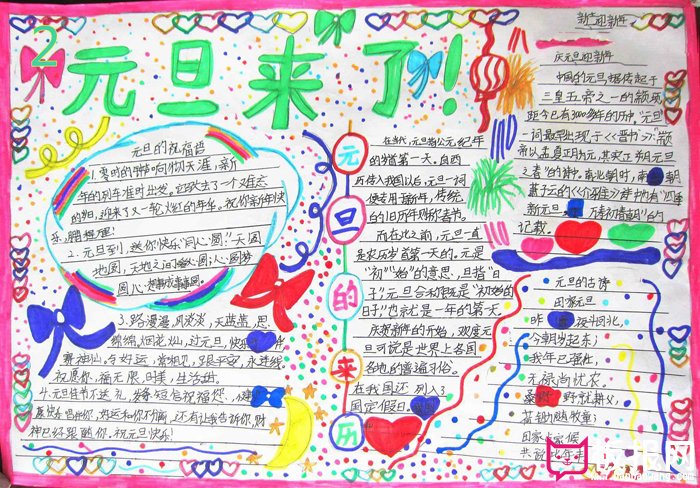 2
元旦来了!
元旦的祝福语
1.零时的钟声响彻天涯,新
年的列车准时出发。它驮去了一个难忘
的旧,迎来了又一轮火红的年华。祝你新年快
乐,
2.元旦到,送你快乐"同心圆":天圆
地圆,天地之间
圆心
3.路漫漫,风淡淡,天蓝蓝,思
绵绵,烟花灿,过元旦,快
赛神仙,与好运,常相见,跟平安,永连线
祝愿你,福无限,日美,生活甜。
4.元旦佳节不送礼,发条短信祝福您。
神已经跟随你。祝元旦快乐!
元旦的来历
在当代,元旦指公元纪年
的岁首第一天。自西
历传入我国以后,元旦一词
便专用于新年,传统
的旧历年则称春节。
而在此之前,元旦一直
是农历岁首第一天的。元是
"初""始"的意思,旦指"日
子",元旦合称即是"初始的
日子",也就是一年的第一天。
庆祝新年的开始,欢度元
旦可说是世界上各国
各地的普遍习俗。
在我国还列入3
国定假日。
新年迎新年
庆元旦迎新年
中国的元旦据传起于
三皇五帝之一的颛顼,
距今已有3000多年的历史。"元旦"
一词最早出现于《晋书》:"颛
帝以孟夏正月为元,其实正朔元旦
之春"的诗中。南北朝时,南 朝
萧子云的《介雅》诗中也有"四季
新元旦, 万寿初春朝"的
记载。
元旦的古诗
田家元旦
昨 夜斗回北,
今朝岁起东;
我年已强仕,
无禄尚忧农。
野就耕父,
荷锄随牧童;
田家占气候,
共说此年